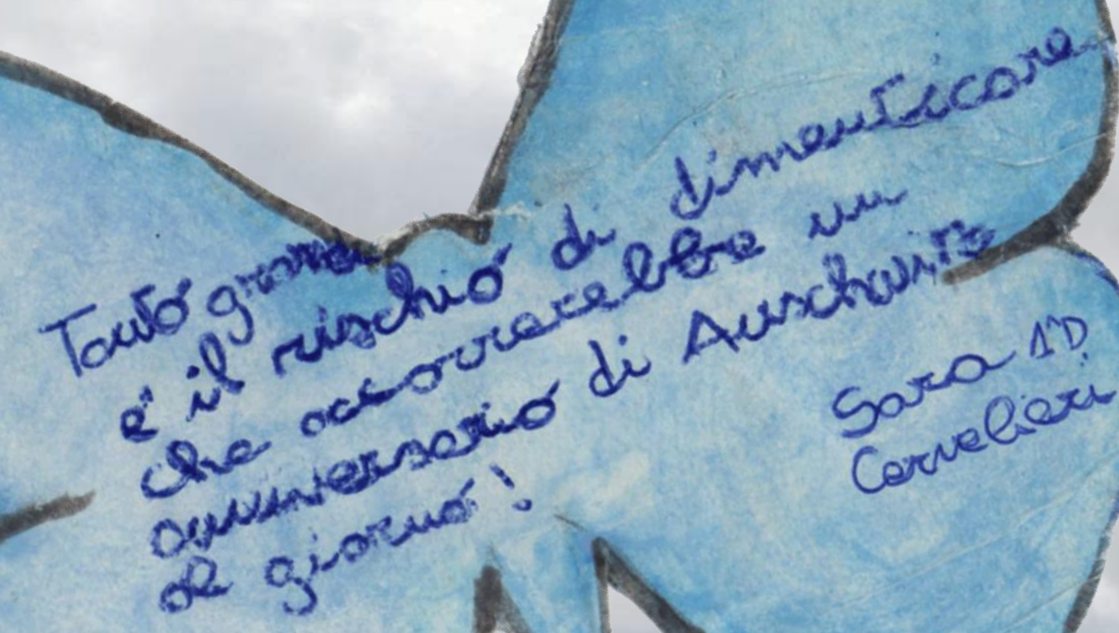 Tanto grande
è il rischio di dimenticare
che occorrerebbe un
anniversario di Auschwitz
al giorno!
Sara 1°D
Cervelieri